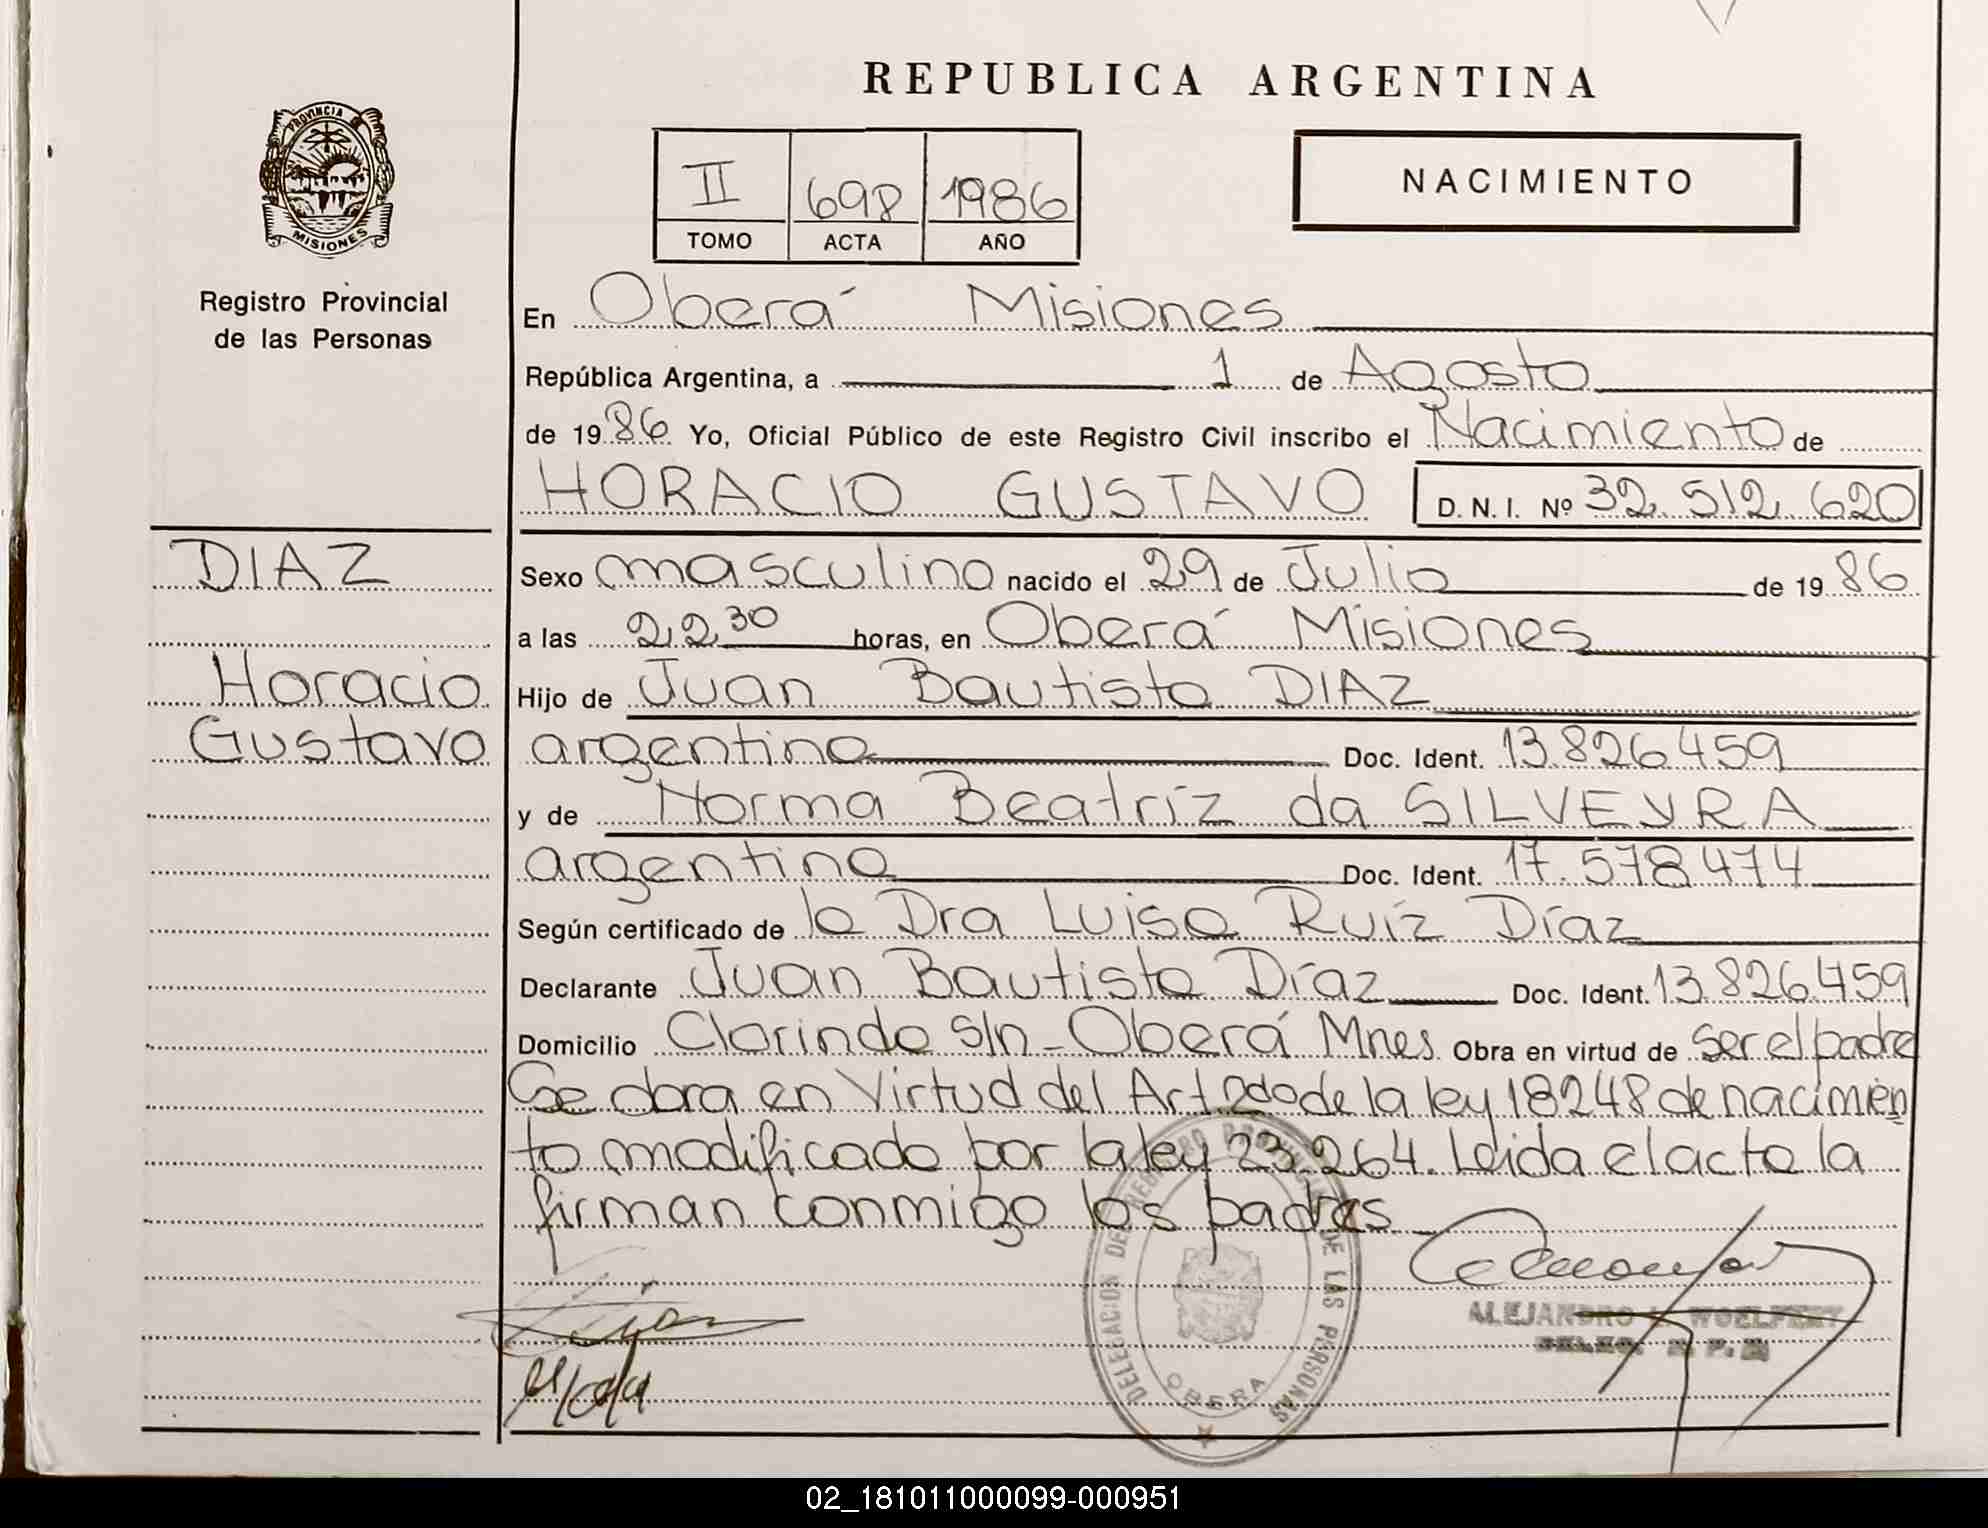 REPUBLICA ARGENTINA
PROVINCIA DE
MISIONES
II 698 1986
TOMO ACTA AÑO
NACIMIENTO
Registro Provincial
de las Personas
En Oberá Misiones
República Argentina, a 1 de Agosto
de 1986 Yo, Oficial Público de este Registro Civil inscribo el Nacimiento de
HORACIO GUSTAVO D. N. I. Nº 32.512.620
DIAZ
Sexo masculino nacido el 29 de Julio de 1986
a las 22,30 horas, en Oberá Misiones
Horacio
Hijo de Juan Bautista DIAZ
Gustavo
argentino Doc. Ident. 13.826.459
y de Norma Beatríz da SILVEYRA
argentina Doc. Ident. 17.578.474
Según certificado de la Dra Luisa Ruíz Díaz
Declarante Juan Bautista Díaz Doc. Ident. 13.826.459
Domicilio Clorinda S/n - Oberá Mnes. Obra en virtud de Ser el padre
Se obra en Virtud del Art 2do de la ley 18248 de nacimien
to modificado por la ley 23.264. Leida el acta la
firman conmigo los padres
DELEGACION DEL REGISTRO PROVINCIAL DE LAS PERSONAS
OBERA
ALEJANDRO WOELFERT
DELEG. R. P. P.
02_181011000099-000951